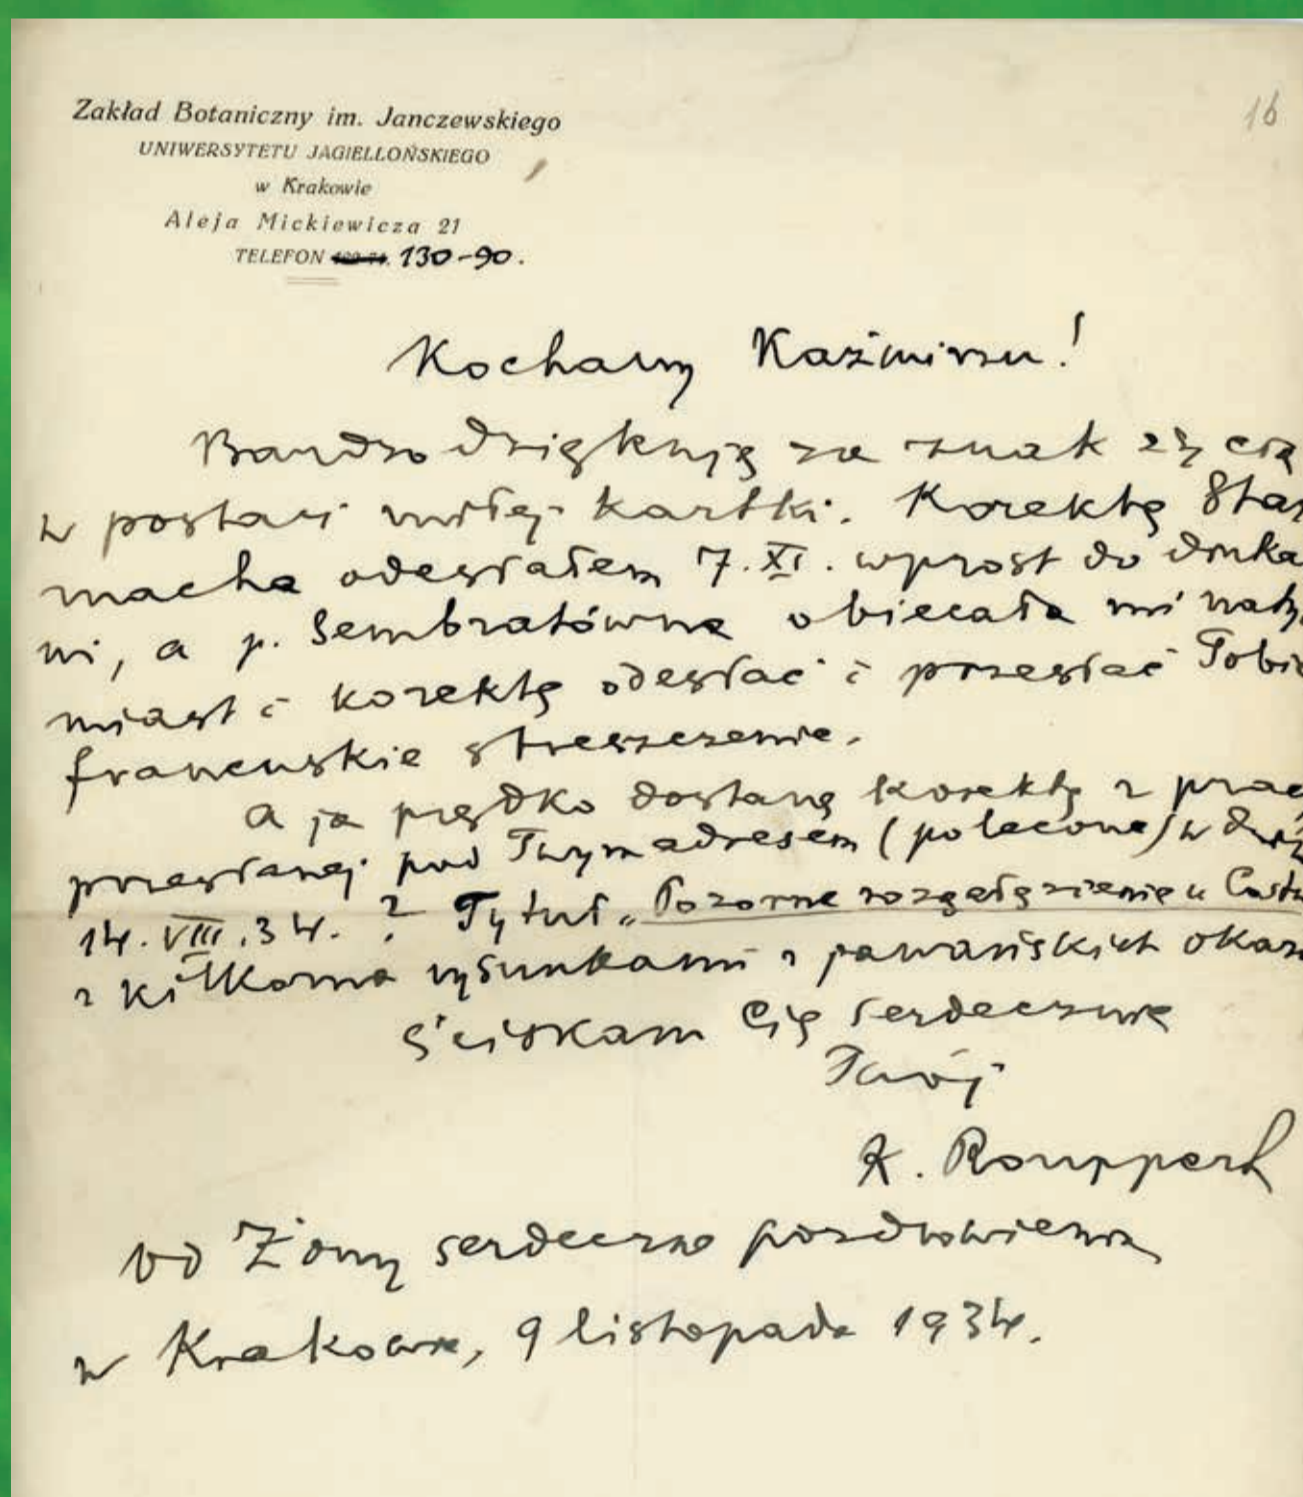 16
Zakład Botaniczny im. Janczewskiego
UNIWERSYTETU JAGIELLOŃSKIEGO
w Krakowie
Aleja Mickiewicza 21
TELEFON 130-90.
Kochany Kaźmirzu!
Bardzo dziękuję za znak życia
w postaci miłej kartki. Korektę Star
macha odesłałem 7.XI. wprost do druka
ni, a p. Sembratówna obiecała mi natych
miast i korektę odesłać i przesłać Tobie
francuskie streszczenie.
A ja prędko dostanę korektę z pracy
przesłanej pod Twym adresem (polecone) w dniu
14.VIII.34. ? Tytuł „Pozorne rozgałęzienie u
z kilkoma rysunkami z jawańskich okaz
Ściskam Cię serdecznie
Twój
K. Rouppert
od Żony serdeczne pozdrowienia
w Krakowie, 9 listopada 1934.